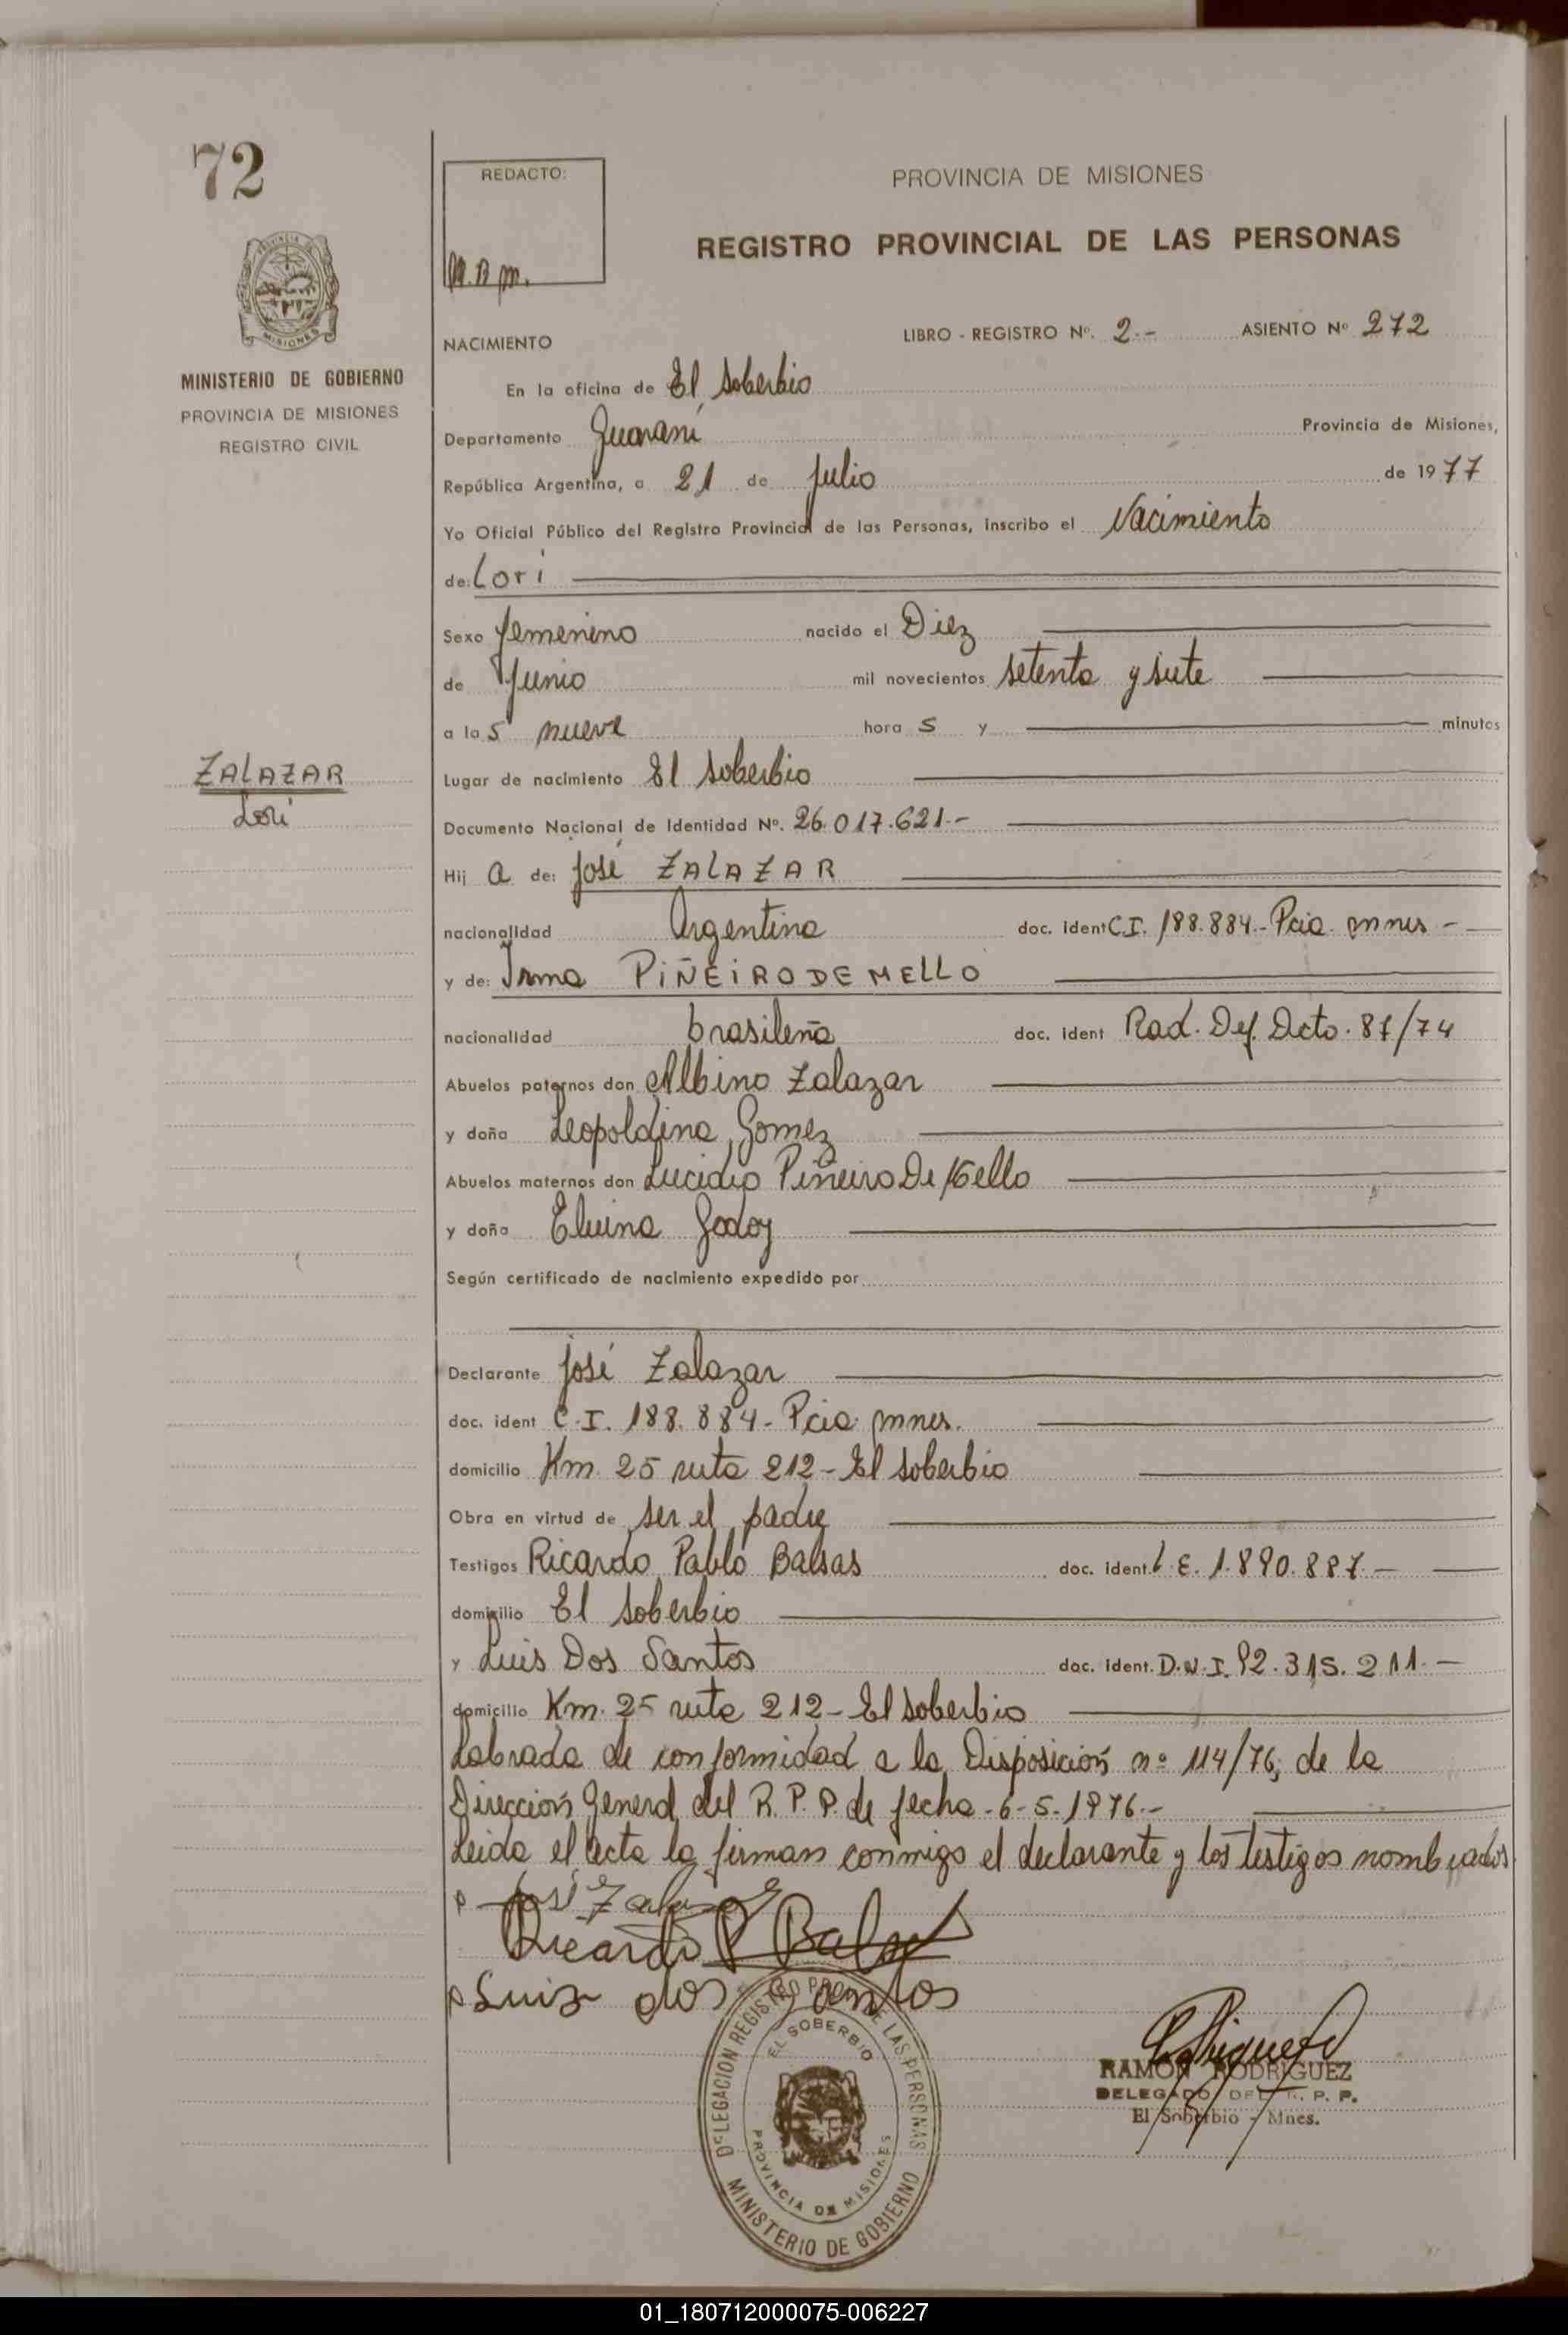 72
REDACTO:
PROVINCIA DE MISIONES
REGISTRO PROVINCIAL DE LAS PERSONAS
MISIONES
MINISTERIO DE GOBIERNO
PROVINCIA DE MISIONES
REGISTRO CIVIL
NACIMIENTO
LIBRO - REGISTRO Nº. 2.- ASIENTO Nº 272
En la oficina de El Soberbio
Departamento Guaraní Provincia de Misiones,
República Argentina, a 21 de Julio de 1977
Yo Oficial Público del Registro Provincial de las Personas, inscribo el Nacimiento
de: Lori
Sexo femenino nacido el Diez
de Junio mil novecientos setenta y siete
a la s nueve hora s y minutos
ZALAZAR
Lori
Lugar de nacimiento El Soberbio
Documento Nacional de Identidad Nº. 26.017.621.-
Hij a de: José ZALAZAR
nacionalidad Argentina doc. ident C.I. 188.884.- Pcia. mnes -
y de: Irma PIÑEIRO DE MELLO
nacionalidad brasileña doc. ident Rad. Def. Dcto. 87/74
Abuelos paternos don Albino Zalazar
y doña Leopoldina Gomez
Abuelos maternos don Lucidio Piñeiro De Mello
y doña Elvina Godoy
Según certificado de nacimiento expedido por
Declarante José Zalazar
doc. ident C.I. 188.884- Pcia mnes.
domicilio Km 25 ruta 212- El Soberbio
Obra en virtud de ser el padre
Testigos Ricardo Pablo Balsas doc. ident. L.E. 1.890.887.-
domicilio El Soberbio
y Luis Dos Santos doc. ident. D.N.I. 92.315.211.-
domicilio Km. 25 ruta 212- El Soberbio
Labrada de conformidad a la Disposición nº 114/76, de la
Dirección General del R.P.P. de fecha -6-5-1976.-
Leida el acta la firman conmigo el declarante y los testigos nombrados
José Zalazar
Ricardo P Balsas
Luis dos Santos
DELEGACION REGISTRO PROV. DE LAS PERSONAS
EL SOBERBIO
PROVINCIA DE MISIONES
MINISTERIO DE GOBIERNO
RAMON RODRIGUEZ
DELEGADO DEL R. P. P.
El Soberbio - Mnes.
01_180712000075-006227